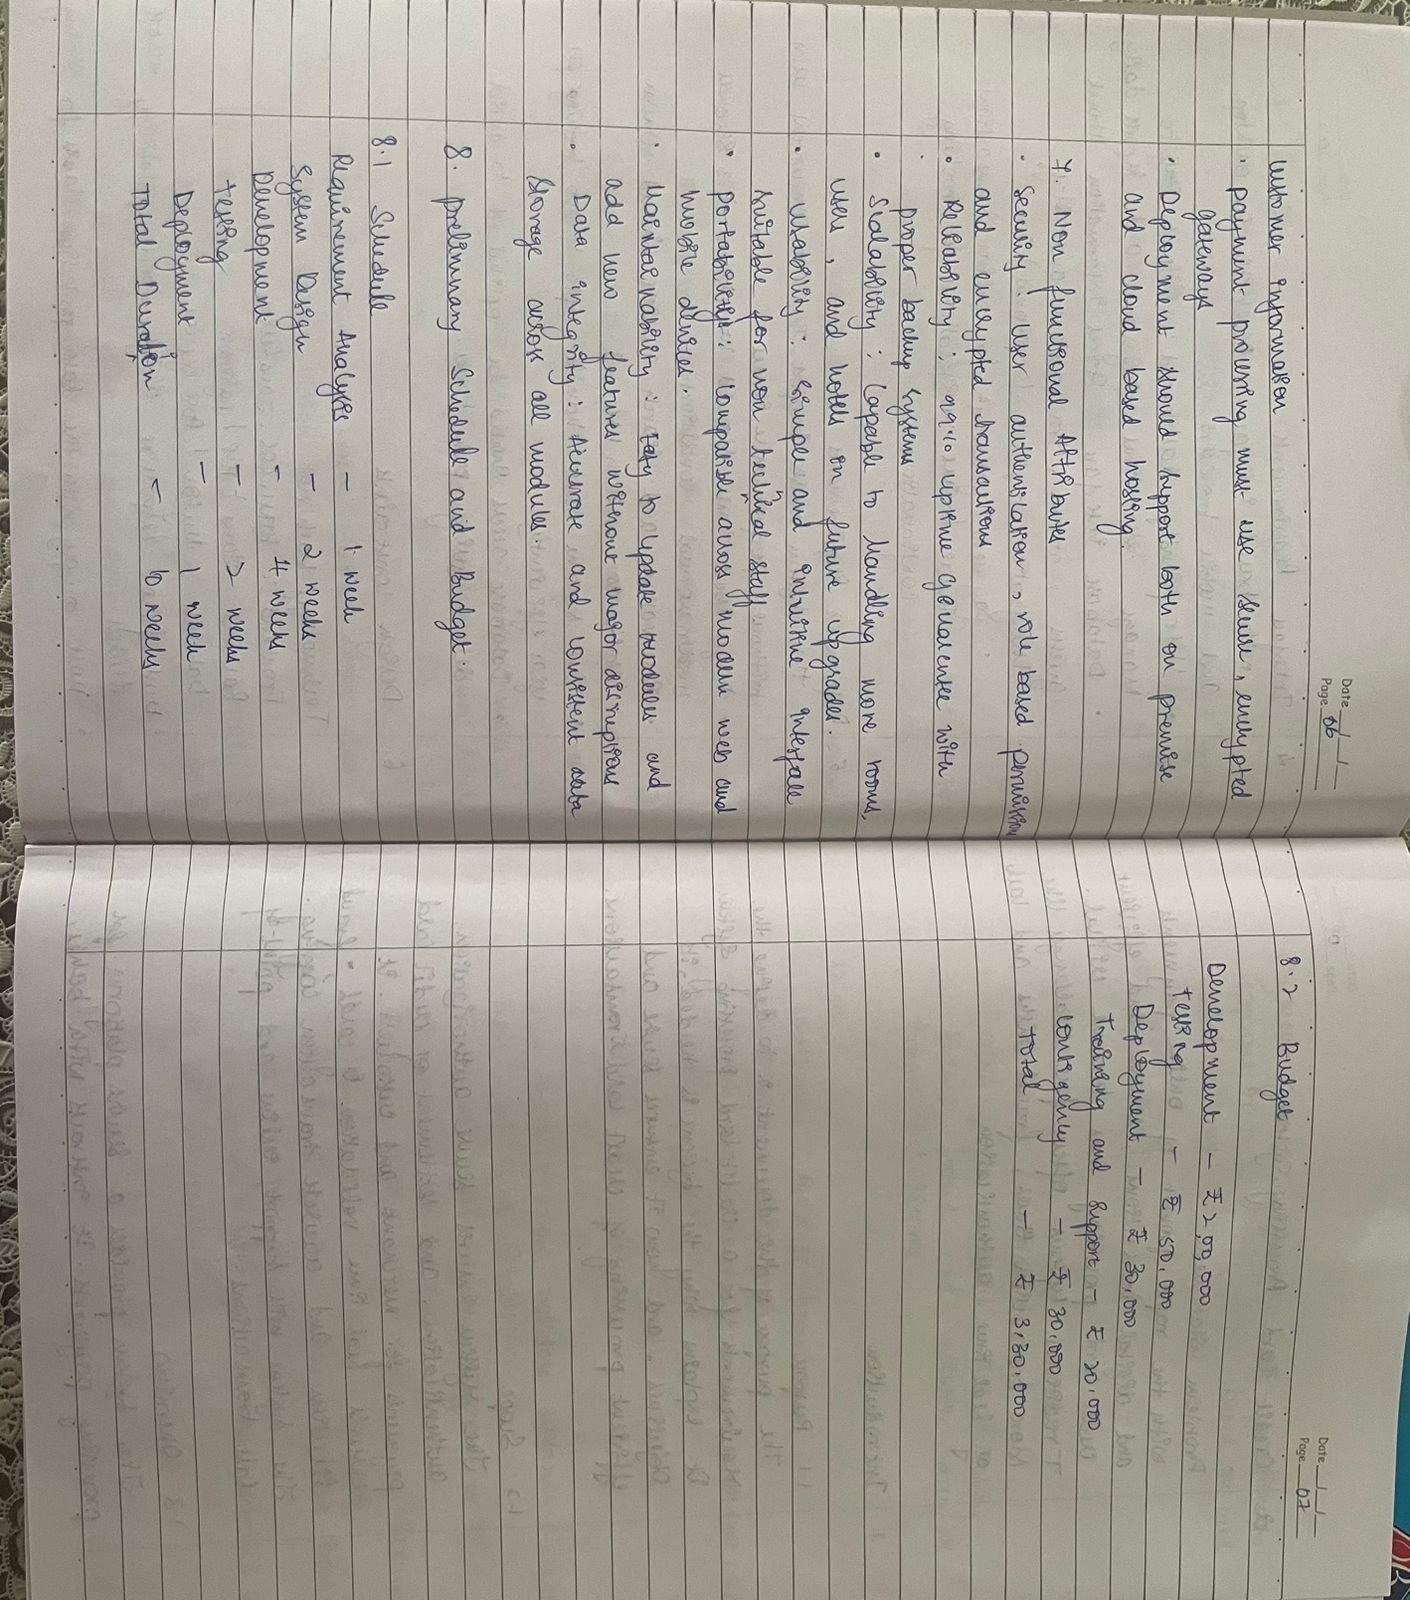 Date __/__/__
Page 06
customer information
• payment processing must use secure, encrypted
gateways
• Deployment should support both on premise
and cloud based hosting.
7. Non functional Attributes
• Security : User authentication, role based permission
and encrypted transactions
• Reliability : 99% uptime guarantee with
proper backup systems
• Scalability : Capable to handling more rooms,
users, and hotels in future upgrades.
• Usability : Simple and intuitive interface
suitable for non technical staff
• portability : Compatible across modern web and
mobile devices.
• Maintainability : Easy to update modules and
add new features without major disruptions
• Data integrity : Accurate and consistent data
storage across all modules.
8. preliminary Schedule and Budget.
8.1 Schedule
Requirement Analysis - 1 week
System Design - 2 weeks
Development - 4 weeks
Testing - 2 weeks
Deployment - 1 week
Total Duration - 10 weeks
Date __/__/__
Page 07
8.2 Budget
Development - ₹ 2,00,000
Testing - ₹ 50,000
Deployment - ₹ 30,000
Training and Support - ₹ 20,000
contigency - ₹ 30,000
Total - ₹ 3,30,000